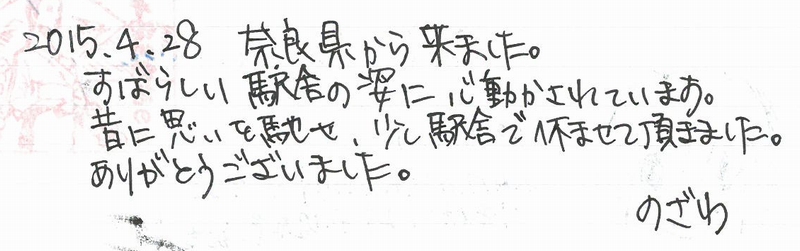 2015.4.28 奈良県から来ました。
すばらしい駅舎の姿に心動かされています。
昔に思いを馳せ、少し駅舎で休ませて頂きました。
ありがとうございました。
のざわ